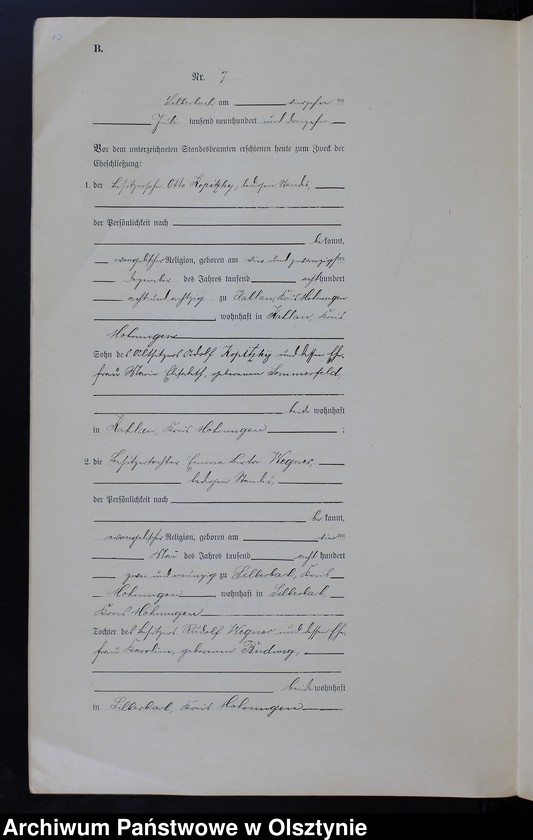 B.
Nr. 7
Silberbach am vierzehnten
Juli tausend neunhundert und dreizehn
Vor dem unterzeichneten Standesbeamten erschienen heute zum Zweck der
Eheschließung:
1. der Besitzersohn Otto Kopitzky, ledigen Standes,
der Persönlichkeit nach
bekannt,
evangelischer Religion, geboren am vier und zwanzigsten
Dezember des Jahres tausend acht hundert
acht und achtzig zu Kahlau, Kreis Mohrungen
, wohnhaft in Kahlau, Kreis
Mohrungen
Sohn des Altsitzers Adolf Kopitzky und dessen Ehe-
frau Marie Elisabeth, geborenen Sommerfeld,
beide wohnhaft
in Kahlau, Kreis Mohrungen ;
2. die Besitzertochter Emma Berta Wegner,
ledigen Standes,
der Persönlichkeit nach
bekannt,
evangelischer Religion, geboren am vierten
Mai des Jahres tausend acht hundert
zwei und neunzig zu Silberbach, Kreis
Mohrungen wohnhaft in Silberbach,
Kreis Mohrungen
Tochter des Besitzers Rudolf Wegner und dessen Ehe-
frau Karoline, geborenen Budweg,
beide wohnhaft
in Silberbach, Kreis Mohrungen
Archiwum Państwowe w Olsztynie